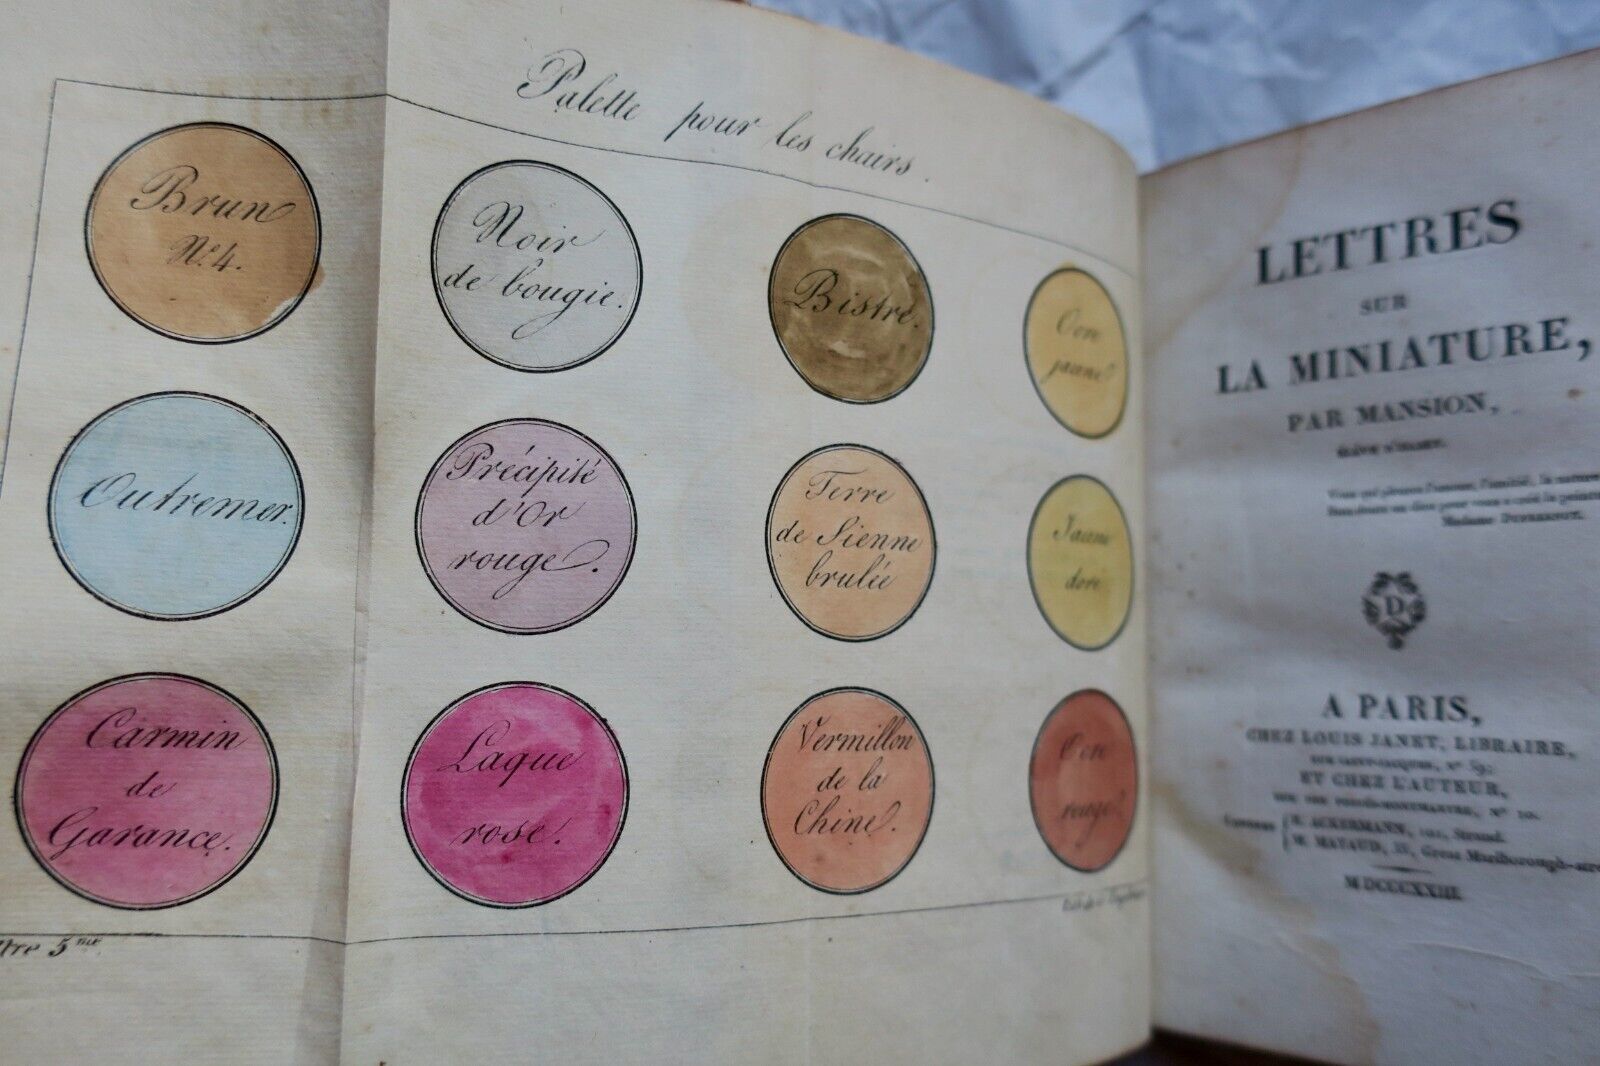 Palette pour les chairs.
Brun
N.º 4.
Noir
de bougie.
Bistre.
Ocre
jaune
Outremer.
Précipité
d'Or
rouge.
Terre
de Sienne
brulée
Jaune
doré
Carmin
de
Garance.
Laque
rose.
Vermillon
de la
Chine.
Ocre
rouge.
ttre 5.me
LETTRES
SUR
LA MINIATURE,
PAR MANSION,
ÉLÈVE D'ISABEY.
Madame DUFRESNOY.
D
A PARIS,
CHEZ LOUIS JANET, LIBRAIRE,
RUE SAINT-JACQUES, Nº 59;
ET CHEZ L'AUTEUR,
Nº 10.
R. ACKERMANN, 101, Strand.
Great Marlborough-
MDCCCXXIII